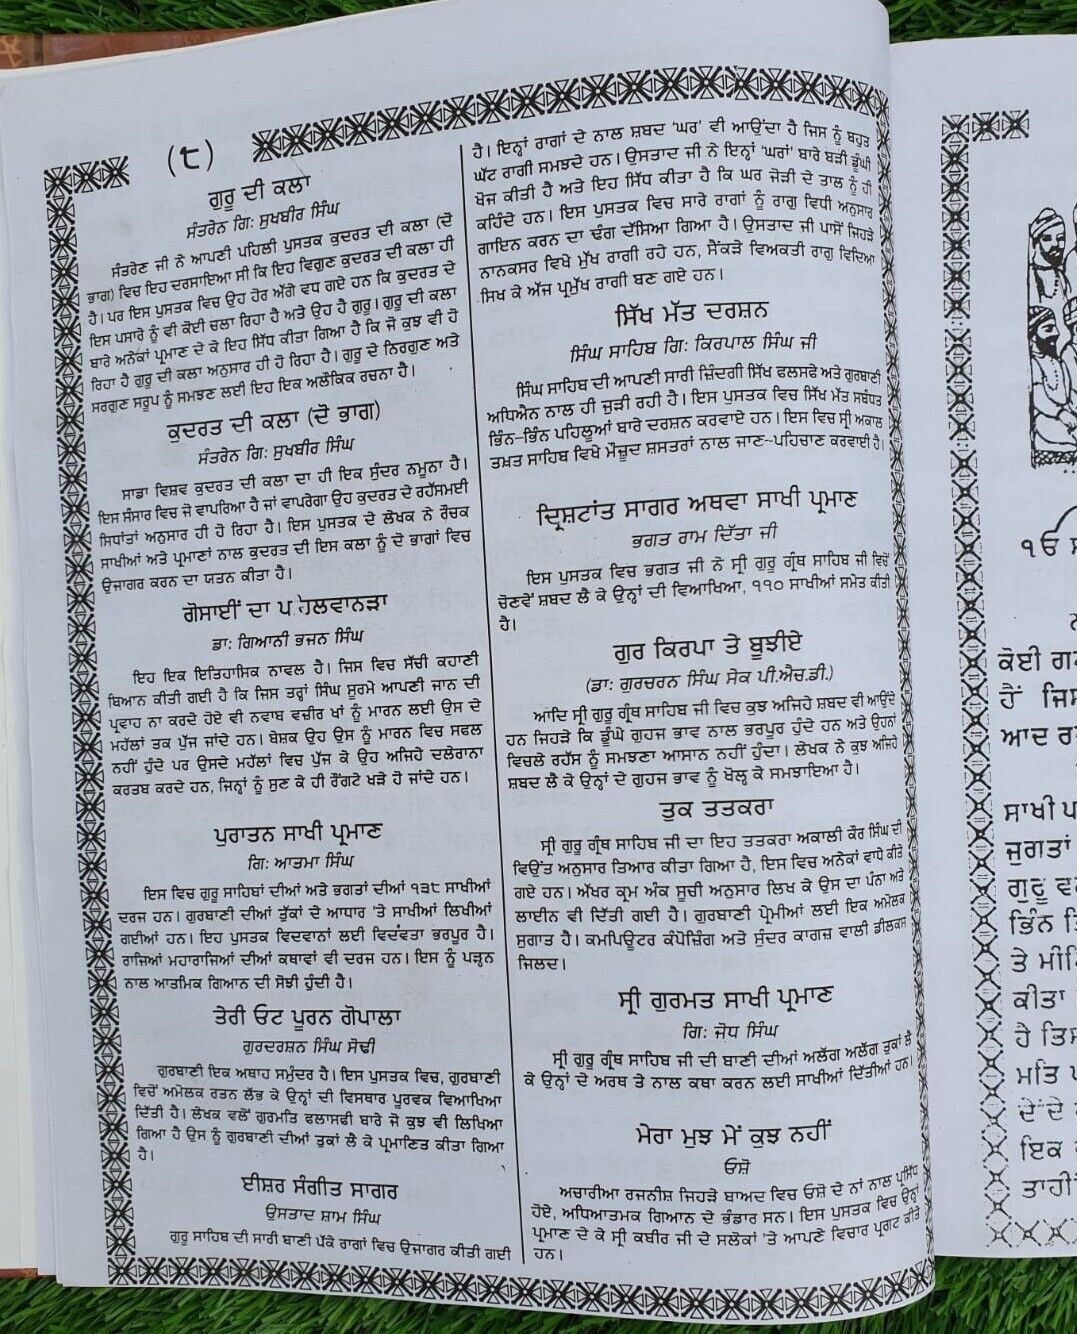 (੮)
ਗੁਰੂ ਦੀ ਕਲਾ
ਸੰਤਰੇਨ ਗਿ: ਸੁਖਬੀਰ ਸਿੰਘ
ਸੰਤਰੇਣ ਜੀ ਨੇ ਆਪਣੀ ਪਹਿਲੀ ਪੁਸਤਕ ਕੁਦਰਤ ਦੀ ਕਲਾ (ਦੋ
ਭਾਗ) ਵਿਚ ਇਹ ਦਰਸਾਇਆ ਸੀ ਕਿ ਇਹ ਵਿਗੁਣ ਕੁਦਰਤ ਦੀ ਕਲਾ ਹੀ
ਹੈ। ਪਰ ਇਸ ਪੁਸਤਕ ਵਿਚ ਉਹ ਹੋਰ ਅੱਗੇ ਵਧ ਗਏ ਹਨ ਕਿ ਕੁਦਰਤ ਦੇ
ਇਸ ਪਸਾਰੇ ਨੂੰ ਵੀ ਕੋਈ ਚਲਾ ਰਿਹਾ ਹੈ ਅਤੇ ਉਹ ਹੈ ਗੁਰੂ। ਗੁਰੂ ਦੀ ਕਲਾ
ਬਾਰੇ ਅਨੇਕਾਂ ਪ੍ਰਮਾਣ ਦੇ ਕੇ ਇਹ ਸਿੱਧ ਕੀਤਾ ਗਿਆ ਹੈ ਕਿ ਜੋ ਕੁਝ ਵੀ ਹੋ
ਰਿਹਾ ਹੈ ਗੁਰੂ ਦੀ ਕਲਾ ਅਨੁਸਾਰ ਹੀ ਹੋ ਰਿਹਾ ਹੈ। ਗੁਰੂ ਦੇ ਨਿਰਗੁਣ ਅਤੇ
ਸਰਗੁਣ ਸਰੂਪ ਨੂੰ ਸਮਝਣ ਲਈ ਇਹ ਇਕ ਅਲੌਕਿਕ ਰਚਨਾ ਹੈ।
ਕੁਦਰਤ ਦੀ ਕਲਾ (ਦੋ ਭਾਗ)
ਸੰਤਰੇਨ ਗਿ: ਸੁਖਬੀਰ ਸਿੰਘ
ਸਾਡਾ ਵਿਸ਼ਵ ਕੁਦਰਤ ਦੀ ਕਲਾ ਦਾ ਹੀ ਇਕ ਸੁੰਦਰ ਨਮੂਨਾ ਹੈ।
ਇਸ ਸੰਸਾਰ ਵਿਚ ਜੋ ਵਾਪਰਿਆ ਹੈ ਜਾਂ ਵਾਪਰੇਗਾ ਉਹ ਕੁਦਰਤ ਦੇ ਰਹੱਸਮਈ
ਸਿਧਾਂਤਾਂ ਅਨੁਸਾਰ ਹੀ ਹੋ ਰਿਹਾ ਹੈ। ਇਸ ਪੁਸਤਕ ਦੇ ਲੇਖਕ ਨੇ ਰੌਚਕ
ਸਾਖੀਆਂ ਅਤੇ ਪ੍ਰਮਾਣਾਂ ਨਾਲ ਕੁਦਰਤ ਦੀ ਇਸ ਕਲਾ ਨੂੰ ਦੋ ਭਾਗਾਂ ਵਿਚ
ਉਜਾਗਰ ਕਰਨ ਦਾ ਯਤਨ ਕੀਤਾ ਹੈ।
ਗੋਸਾਈਂ ਦਾ ਪਹੇਲਵਾਨੜਾ
ਡਾ: ਗਿਆਨੀ ਭਜਨ ਸਿੰਘ
ਇਹ ਇਕ ਇਤਿਹਾਸਿਕ ਨਾਵਲ ਹੈ। ਜਿਸ ਵਿਚ ਸੱਚੀ ਕਹਾਣੀ
ਬਿਆਨ ਕੀਤੀ ਗਈ ਹੈ ਕਿ ਜਿਸ ਤਰ੍ਹਾਂ ਸਿੰਘ ਸੂਰਮੇ ਆਪਣੀ ਜਾਨ ਦੀ
ਪ੍ਰਵਾਹ ਨਾ ਕਰਦੇ ਹੋਏ ਵੀ ਨਵਾਬ ਵਜ਼ੀਰ ਖਾਂ ਨੂੰ ਮਾਰਨ ਲਈ ਉਸ ਦੇ
ਮਹੱਲਾਂ ਤਕ ਪੁੱਜ ਜਾਂਦੇ ਹਨ। ਬੇਸ਼ਕ ਉਹ ਉਸ ਨੂੰ ਮਾਰਨ ਵਿਚ ਸਫਲ
ਨਹੀਂ ਹੁੰਦੇ ਪਰ ਉਸਦੇ ਮਹੱਲਾਂ ਵਿਚ ਪੁੱਜ ਕੇ ਉਹ ਅਜਿਹੇ ਦਲੇਰਾਨਾ
ਕਰਤਬ ਕਰਦੇ ਹਨ, ਜਿਨ੍ਹਾਂ ਨੂੰ ਸੁਣ ਕੇ ਹੀ ਰੌਂਗਟੇ ਖੜੇ ਹੋ ਜਾਂਦੇ ਹਨ।
ਪੁਰਾਤਨ ਸਾਖੀ ਪ੍ਰਮਾਣ
ਗਿ: ਆਤਮਾ ਸਿੰਘ
ਇਸ ਵਿਚ ਗੁਰੂ ਸਾਹਿਬਾਂ ਦੀਆਂ ਅਤੇ ਭਗਤਾਂ ਦੀਆਂ ੧੩੮ ਸਾਖੀਆਂ
ਦਰਜ ਹਨ। ਗੁਰਬਾਣੀ ਦੀਆਂ ਤੁੱਕਾਂ ਦੇ ਆਧਾਰ 'ਤੇ ਸਾਖੀਆਂ ਲਿਖੀਆਂ
ਗਈਆਂ ਹਨ। ਇਹ ਪੁਸਤਕ ਵਿਦਵਾਨਾਂ ਲਈ ਵਿਦੰਵਤਾ ਭਰਪੂਰ ਹੈ।
ਰਾਜਿਆਂ ਮਹਾਰਾਜਿਆਂ ਦੀਆਂ ਕਥਾਵਾਂ ਵੀ ਦਰਜ ਹਨ। ਇਸ ਨੂੰ ਪੜ੍ਹਨ
ਨਾਲ ਆਤਮਿਕ ਗਿਆਨ ਦੀ ਸੋਝੀ ਹੁੰਦੀ ਹੈ।
ਤੇਰੀ ਓਟ ਪੂਰਨ ਗੋਪਾਲਾ
ਗੁਰਦਰਸ਼ਨ ਸਿੰਘ ਸੋਢੀ
ਗੁਰਬਾਣੀ ਇਕ ਅਥਾਹ ਸਮੁੰਦਰ ਹੈ। ਇਸ ਪੁਸਤਕ ਵਿਚ, ਗੁਰਬਾਣੀ
ਵਿਚੋਂ ਅਮੋਲਕ ਰਤਨ ਲੱਭ ਕੇ ਉਨ੍ਹਾਂ ਦੀ ਵਿਸਥਾਰ ਪੂਰਵਕ ਵਿਆਖਿਆ
ਦਿੱਤੀ ਹੈ। ਲੇਖਕ ਵਲੋਂ ਗੁਰਮਤਿ ਫਲਾਸਫੀ ਬਾਰੇ ਜੋ ਕੁਝ ਵੀ ਲਿਖਿਆ
ਗਿਆ ਹੈ ਉਸ ਨੂੰ ਗੁਰਬਾਣੀ ਦੀਆਂ ਤੁਕਾਂ ਲੈ ਕੇ ਪ੍ਰਮਾਣਿਤ ਕੀਤਾ ਗਿਆ
ਹੈ।
ਈਸ਼ਰ ਸੰਗੀਤ ਸਾਗਰ
ਉਸਤਾਦ ਸ਼ਾਮ ਸਿੰਘ
ਗੁਰੂ ਸਾਹਿਬ ਦੀ ਸਾਰੀ ਬਾਣੀ ਪੱਕੇ ਰਾਗਾਂ ਵਿਚ ਉਜਾਗਰ ਕੀਤੀ ਗਈ
ਹੈ। ਇਨ੍ਹਾਂ ਰਾਗਾਂ ਦੇ ਨਾਲ ਸ਼ਬਦ 'ਘਰ' ਵੀ ਆਉਂਦਾ ਹੈ ਜਿਸ ਨੂੰ ਬਹੁਤ
ਘੱਟ ਰਾਗੀ ਸਮਝਦੇ ਹਨ। ਉਸਤਾਦ ਜੀ ਨੇ ਇਨ੍ਹਾਂ 'ਘਰਾਂ' ਬਾਰੇ ਬੜੀ ਡੂੰਘੀ
ਖੋਜ ਕੀਤੀ ਹੈ ਅਤੇ ਇਹ ਸਿੱਧ ਕੀਤਾ ਹੈ ਕਿ ਘਰ ਜੋੜੀ ਦੇ ਤਾਲ ਨੂੰ ਹੀ
ਕਹਿੰਦੇ ਹਨ। ਇਸ ਪੁਸਤਕ ਵਿਚ ਸਾਰੇ ਰਾਗਾਂ ਨੂੰ ਰਾਗੁ ਵਿਧੀ ਅਨੁਸਾਰ
ਗਾਇਨ ਕਰਨ ਦਾ ਢੰਗ ਦੱਸਿਆ ਗਿਆ ਹੈ। ਉਸਤਾਦ ਜੀ ਪਾਸੋਂ ਜਿਹੜੇ
ਨਾਨਕਸਰ ਵਿਖੇ ਮੁੱਖ ਰਾਗੀ ਰਹੇ ਹਨ, ਸੈਂਕੜੇ ਵਿਅਕਤੀ ਰਾਗੁ ਵਿਦਿਆ
ਸਿਖ ਕੇ ਅੱਜ ਪ੍ਰਮੁੱਖ ਰਾਗੀ ਬਣ ਗਏ ਹਨ।
ਸਿੱਖ ਮੱਤ ਦਰਸ਼ਨ
ਸਿੰਘ ਸਾਹਿਬ ਗਿ: ਕਿਰਪਾਲ ਸਿੰਘ ਜੀ
ਸਿੰਘ ਸਾਹਿਬ ਦੀ ਆਪਣੀ ਸਾਰੀ ਜ਼ਿੰਦਗੀ ਸਿੱਖ ਫਲਸਫੇ ਅਤੇ ਗੁਰਬਾਣੀ
ਅਧਿਐਨ ਨਾਲ ਹੀ ਜੁੜੀ ਰਹੀ ਹੈ। ਇਸ ਪੁਸਤਕ ਵਿਚ ਸਿੱਖ ਮੱਤ ਸਬੰਧਤ
ਭਿੰਨ-ਭਿੰਨ ਪਹਿਲੂਆਂ ਬਾਰੇ ਦਰਸ਼ਨ ਕਰਵਾਏ ਹਨ। ਇਸ ਵਿਚ ਸ੍ਰੀ ਅਕਾਲ
ਤਖ਼ਤ ਸਾਹਿਬ ਵਿਖੇ ਮੌਜੂਦ ਸ਼ਸਤਰਾਂ ਨਾਲ ਜਾਣ-ਪਹਿਚਾਣ ਕਰਵਾਈ ਹੈ।
ਦ੍ਰਿਸ਼ਟਾਂਤ ਸਾਗਰ ਅਥਵਾ ਸਾਖੀ ਪ੍ਰਮਾਣ
ਭਗਤ ਰਾਮ ਦਿੱਤਾ ਜੀ
ਇਸ ਪੁਸਤਕ ਵਿਚ ਭਗਤ ਜੀ ਨੇ ਸ੍ਰੀ ਗੁਰੂ ਗ੍ਰੰਥ ਸਾਹਿਬ ਜੀ ਵਿਚੋਂ
ਚੋਣਵੇਂ ਸ਼ਬਦ ਲੈ ਕੇ ਉਨ੍ਹਾਂ ਦੀ ਵਿਆਖਿਆ, ੧੧੦ ਸਾਖੀਆਂ ਸਮੇਤ ਕੀਤੀ
ਹੈ।
ਗੁਰ ਕਿਰਪਾ ਤੇ ਬੂਝੀਏ
(ਡਾ: ਗੁਰਚਰਨ ਸਿੰਘ ਸੇਕ ਪੀ.ਐਚ.ਡੀ.)
ਆਦਿ ਸ੍ਰੀ ਗੁਰੂ ਗ੍ਰੰਥ ਸਾਹਿਬ ਜੀ ਵਿਚ ਕੁਝ ਅਜਿਹੇ ਸ਼ਬਦ ਵੀ ਆਉਂਦੇ
ਹਨ ਜਿਹੜੇ ਕਿ ਡੂੰਘੇ ਗੁਹਜ ਭਾਵ ਨਾਲ ਭਰਪੂਰ ਹੁੰਦੇ ਹਨ ਅਤੇ ਉਹਨਾਂ
ਵਿਚਲੇ ਰਹੱਸ ਨੂੰ ਸਮਝਣਾ ਆਸਾਨ ਨਹੀਂ ਹੁੰਦਾ। ਲੇਖਕ ਨੇ ਕੁਝ ਅਜਿਹੇ
ਸ਼ਬਦ ਲੈ ਕੇ ਉਨ੍ਹਾਂ ਦੇ ਗੁਹਜ ਭਾਵ ਨੂੰ ਖੋਲ੍ਹ ਕੇ ਸਮਝਾਇਆ ਹੈ।
ਤੁਕ ਤਤਕਰਾ
ਸ੍ਰੀ ਗੁਰੂ ਗ੍ਰੰਥ ਸਾਹਿਬ ਜੀ ਦਾ ਇਹ ਤਤਕਰਾ ਅਕਾਲੀ ਕੌਰ ਸਿੰਘ ਦੀ
ਵਿਉਂਤ ਅਨੁਸਾਰ ਤਿਆਰ ਕੀਤਾ ਗਿਆ ਹੈ, ਇਸ ਵਿਚ ਅਨੇਕਾਂ ਵਾਧੇ ਕੀਤੇ
ਗਏ ਹਨ। ਅੱਖਰ ਕ੍ਰਮ ਅੰਕ ਸੂਚੀ ਅਨੁਸਾਰ ਲਿਖ ਕੇ ਉਸ ਦਾ ਪੰਨਾ ਅਤੇ
ਲਾਈਨ ਵੀ ਦਿੱਤੀ ਗਈ ਹੈ। ਗੁਰਬਾਣੀ ਪ੍ਰੇਮੀਆਂ ਲਈ ਇਕ ਅਮੋਲਕ
ਸੁਗਾਤ ਹੈ। ਕਮਪਿਊਟਰ ਕੰਪੋਜ਼ਿੰਗ ਅਤੇ ਸੁੰਦਰ ਕਾਗਜ਼ ਵਾਲੀ ਡੀਲਕਸ
ਜਿਲਦ।
ਸ੍ਰੀ ਗੁਰਮਤ ਸਾਖੀ ਪ੍ਰਮਾਣ
ਗਿ: ਜੋਧ ਸਿੰਘ
ਸ੍ਰੀ ਗੁਰੂ ਗ੍ਰੰਥ ਸਾਹਿਬ ਜੀ ਦੀ ਬਾਣੀ ਦੀਆਂ ਅਲੱਗ ਅਲੱਗ ਤੁਕਾਂ ਲੈ
ਕੇ ਉਨ੍ਹਾਂ ਦੇ ਅਰਥ ਤੇ ਨਾਲ ਕਥਾ ਕਰਨ ਲਈ ਸਾਖੀਆਂ ਦਿੱਤੀਆਂ ਹਨ।
ਮੇਰਾ ਮੁਝ ਮੇਂ ਕੁਝ ਨਹੀਂ
ਓਸ਼ੋ
ਅਚਾਰੀਆ ਰਜਨੀਸ਼ ਜਿਹੜੇ ਬਾਅਦ ਵਿਚ ਓਸ਼ੋ ਦੇ ਨਾਂ ਨਾਲ ਪ੍ਰਸਿੱਧ
ਹੋਏ, ਅਧਿਆਤਮਕ ਗਿਆਨ ਦੇ ਭੰਡਾਰ ਸਨ। ਇਸ ਪੁਸਤਕ ਵਿਚ ਉਨ੍ਹਾਂ
ਪ੍ਰਮਾਣ ਦੇ ਕੇ ਸ੍ਰੀ ਕਬੀਰ ਜੀ ਦੇ ਸਲੋਕਾਂ 'ਤੇ ਆਪਣੇ ਵਿਚਾਰ ਪ੍ਰਗਟ ਕੀਤੇ
ਹਨ।
੧ਓ
ਕੋਈ
ਹੈਂ ਜਿਸ
ਆਦ
ਸਾਖੀ
ਜੁਗਤਾਂ
ਗੁਰੂ
ਭਿੰਨ
ਤੇ
ਕੀਤਾ
ਹੈ
ਮਤਿ
ਦੇਂਦੇ
ਇਕ